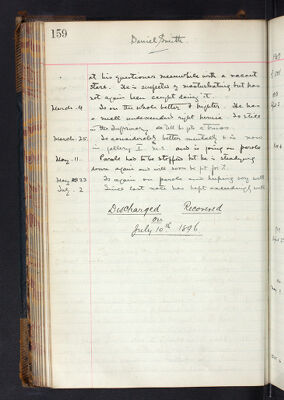 159
Daniel Smith
at his questioner meanwhile with a vacant
stare. He is suspected of masturbating but has
not again been caught doing it.
March. 4 Is on the whole better & brighter. He has
a small undescended right hernia. Is still
in the Infirmary & will be got a truss.
March. 25 Is considerably better mentally & is now
in gallery I. and is going on parole
May. 11. Parole had to be stopped but he is steadying
down again and will soon be fit for it
May 23 Is again on parole and keeping very well
July. 2 Since last note has kept exceedingly well
Discharged Recovered
on
July 10th 1896.